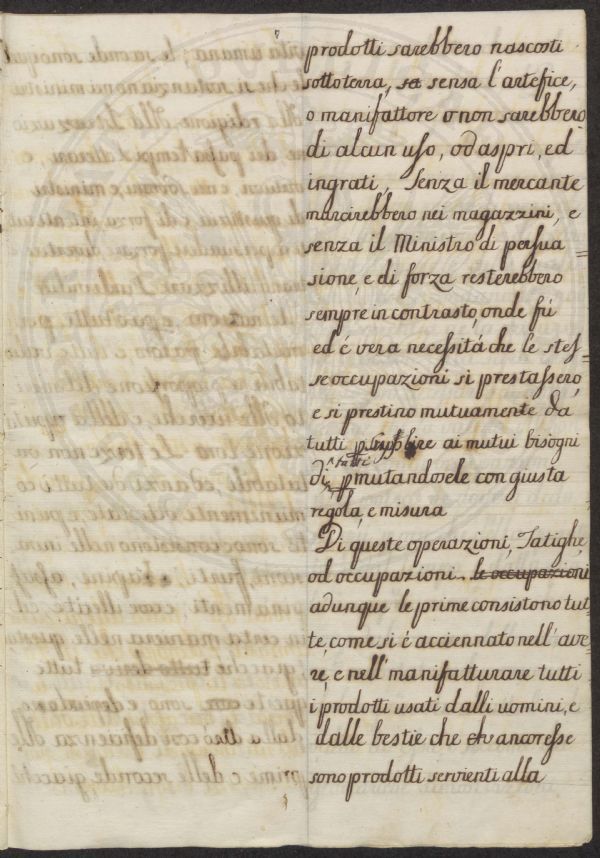 prodotti sarebbero nascosti
sottoterra, se sensa l'artefice,
o manifattore o non sarebbero
di alcun uso, od aspri, ed
ingrati, Senza il mercante
marcirebbero nei magazzini, e
senza il Ministro di persua=
sione, e di forza resterebbero
sempre in contrasto, onde fú
ed é vera necessitá che le stes=
se occupazioni si prestassero,
e si prestino mutuamente da
tutti ai mutui bisogni
tutti
di, pmutandosele con giusta
regola, e misura
Di queste operazioni, Fatighe,
od occupazioni le occupazioni
adunque le prime consistono tut=
te, come si é acciennato nell'ave=
re, e nell'manifatturare tutti
i prodotti usati dalli uomini, e
dalle bestie che ch ancoresse
sono prodotti servienti alla